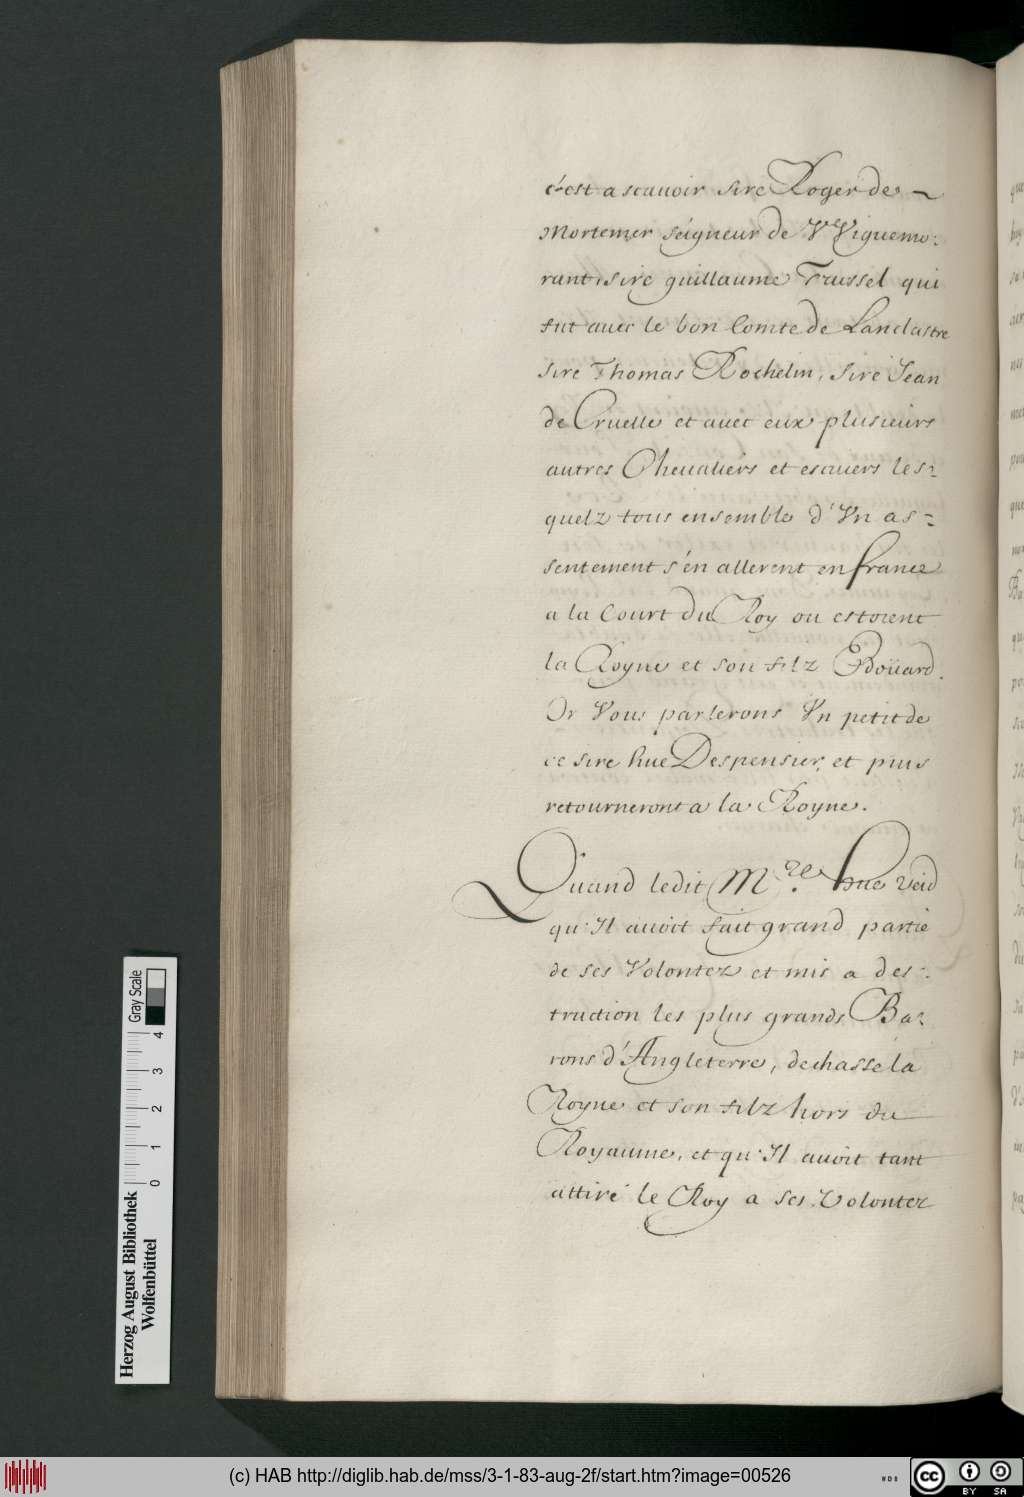 c'est a scavoir sire Roger de ~
Mortemer seigneur de VViguemo:
rant, sire guillaume Trussel qui
fut avec le bon Comte de Lanclastre
sire Thomas Rochelin, sire Jean
de Cruelle et avec eux plusieurs
autres Chevaliers et escuiers les=
quelz tous ensemble d'Un as=
sentement s'en allerent en france
a la Court du Roy ou estoient
la Royne et son filz Edoüard.
Or Vous parlerons Un petit de
ce sire hue Despensier, et puis
retourneront a la Royne.
Quand ledit M.re hue veid
qu'Il avoit fait grand partie
de ses Volontez et mis a des:
truction les plus grands Ba=
rons d'Angleterre, dechasse la
Royne et son filz hors du
Royaume, et qu'Il avoit tant
attiré le Roy a ses Volontez
Herzog August Bibliothek
Wolfenbüttel
0 1 2 3 4
Gray Scale
(c) HAB http://diglib.hab.de/mss/3-1-83-aug-2f/start.htm?image=00526
WDB
cc
BY SA